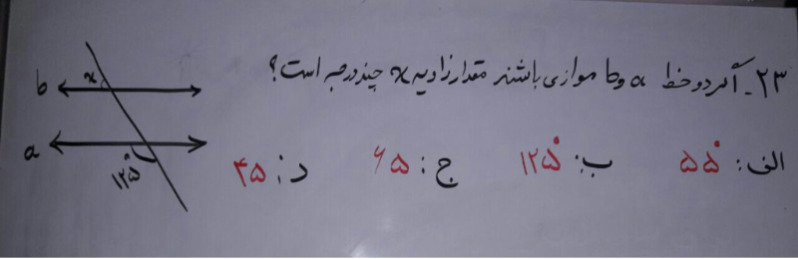 ۲۳- اگر دو خط a و b موازی باشند مقدار زاویه x چند درجه است؟
الف: ۵۵° ب: ۱۲۵° ج: ۶۵ د: ۴۵
x
b
a
۱۲۵°